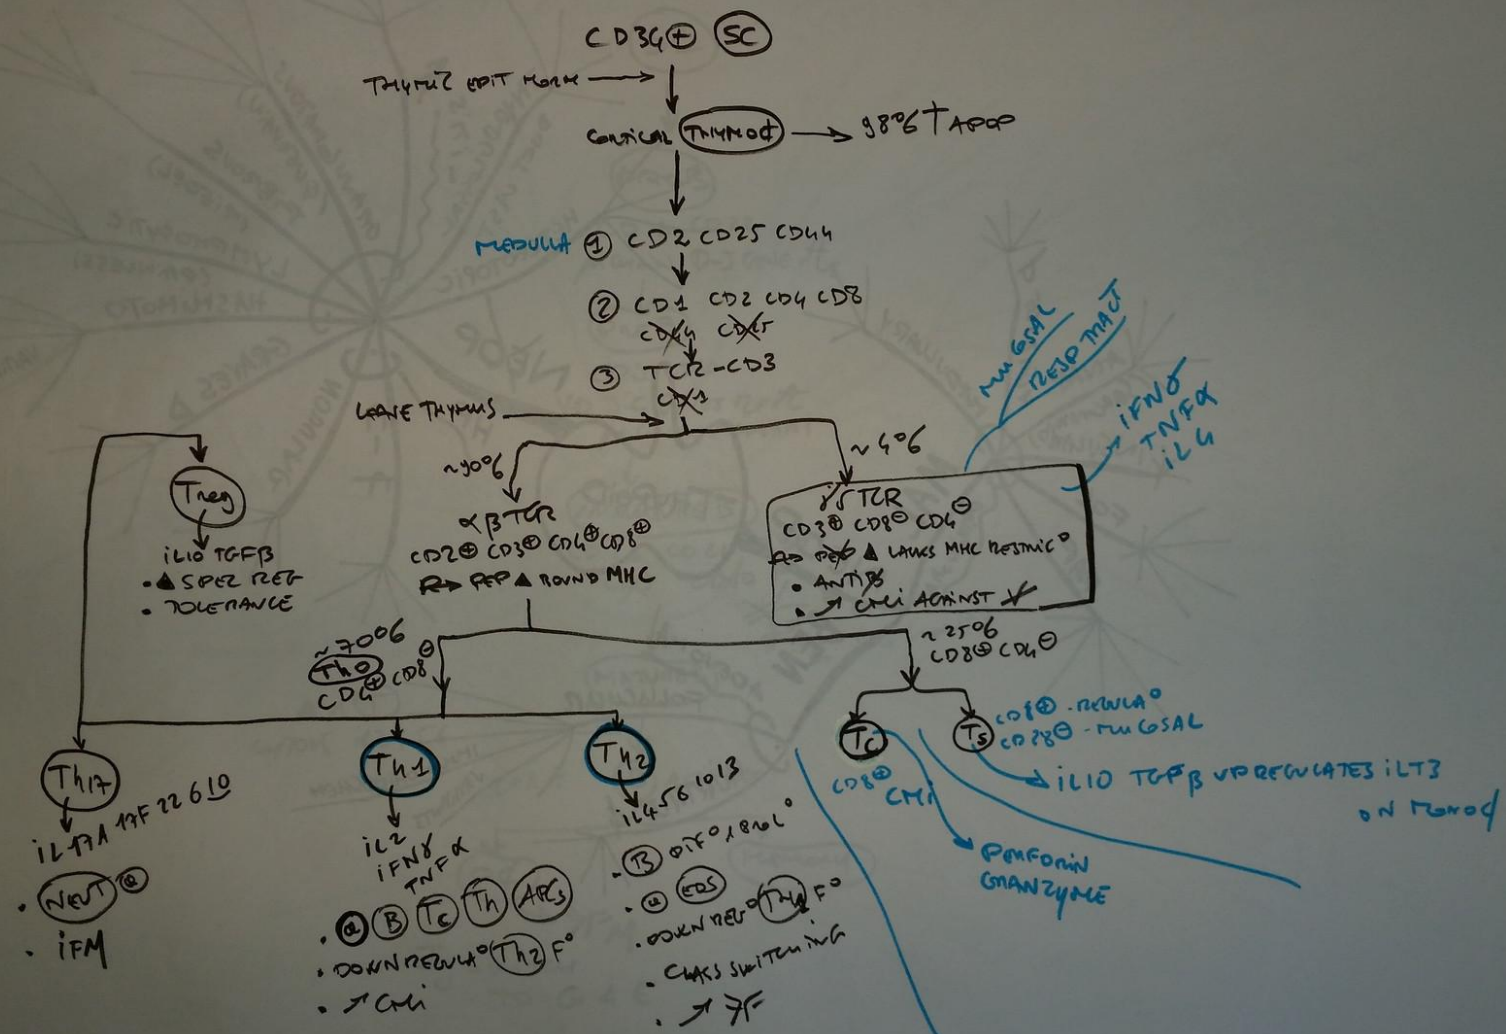 CD34⊕ SC
THYMIC EPIT HORM
CORTICAL THYMOC → 98% † APOP
MEDULLA ① CD2 CD25 CD44
② CD1 CD2 CD4 CD8
CD44 CD25
③ TCR-CD3
CD1
LEAVE THYMUS
~90%
~4%
MUCOSAL
RESP TRACT
iFNγ
TNFα
iL4
Treg
iL10 TGFβ
• ▲ SPEZ REG
• TOLERANCE
αβ TCR
CD2⊕ CD3⊕ CD4⊕ CD8⊕
R→ PEP ▲ BOUND MHC
γδ TCR
CD3⊕ CD8⊖ CD4⊖
R→ PEP ▲ LACKS MHC RESTRIC°
• ANTI
• ↗ CMi AGAINST
~70%
Th0
CD4⊕ CD8⊖
~25%
CD8⊕ CD4⊖
Th17
iL 17A 17F 22 6 10
• NEUT
• iFM
Th1
iL2
iFNγ
TNFα
• B Tc Th APCs
• DOWNREGULA° Th2 F°
• ↗ CMi
Th2
iL4 5 6 10 13
• B DIF°
• EOS
• DOWNREG° F°
• CLASS SWITCHING
• ↗
Tc
CD8⊕
CMi
PERFORIN
GRANZYME
Ts
CD8⊕ - REGULA°
CD28⊖ - MUCOSAL
iL10 TGFβ UPREGULATES iLT3
ON MONOC